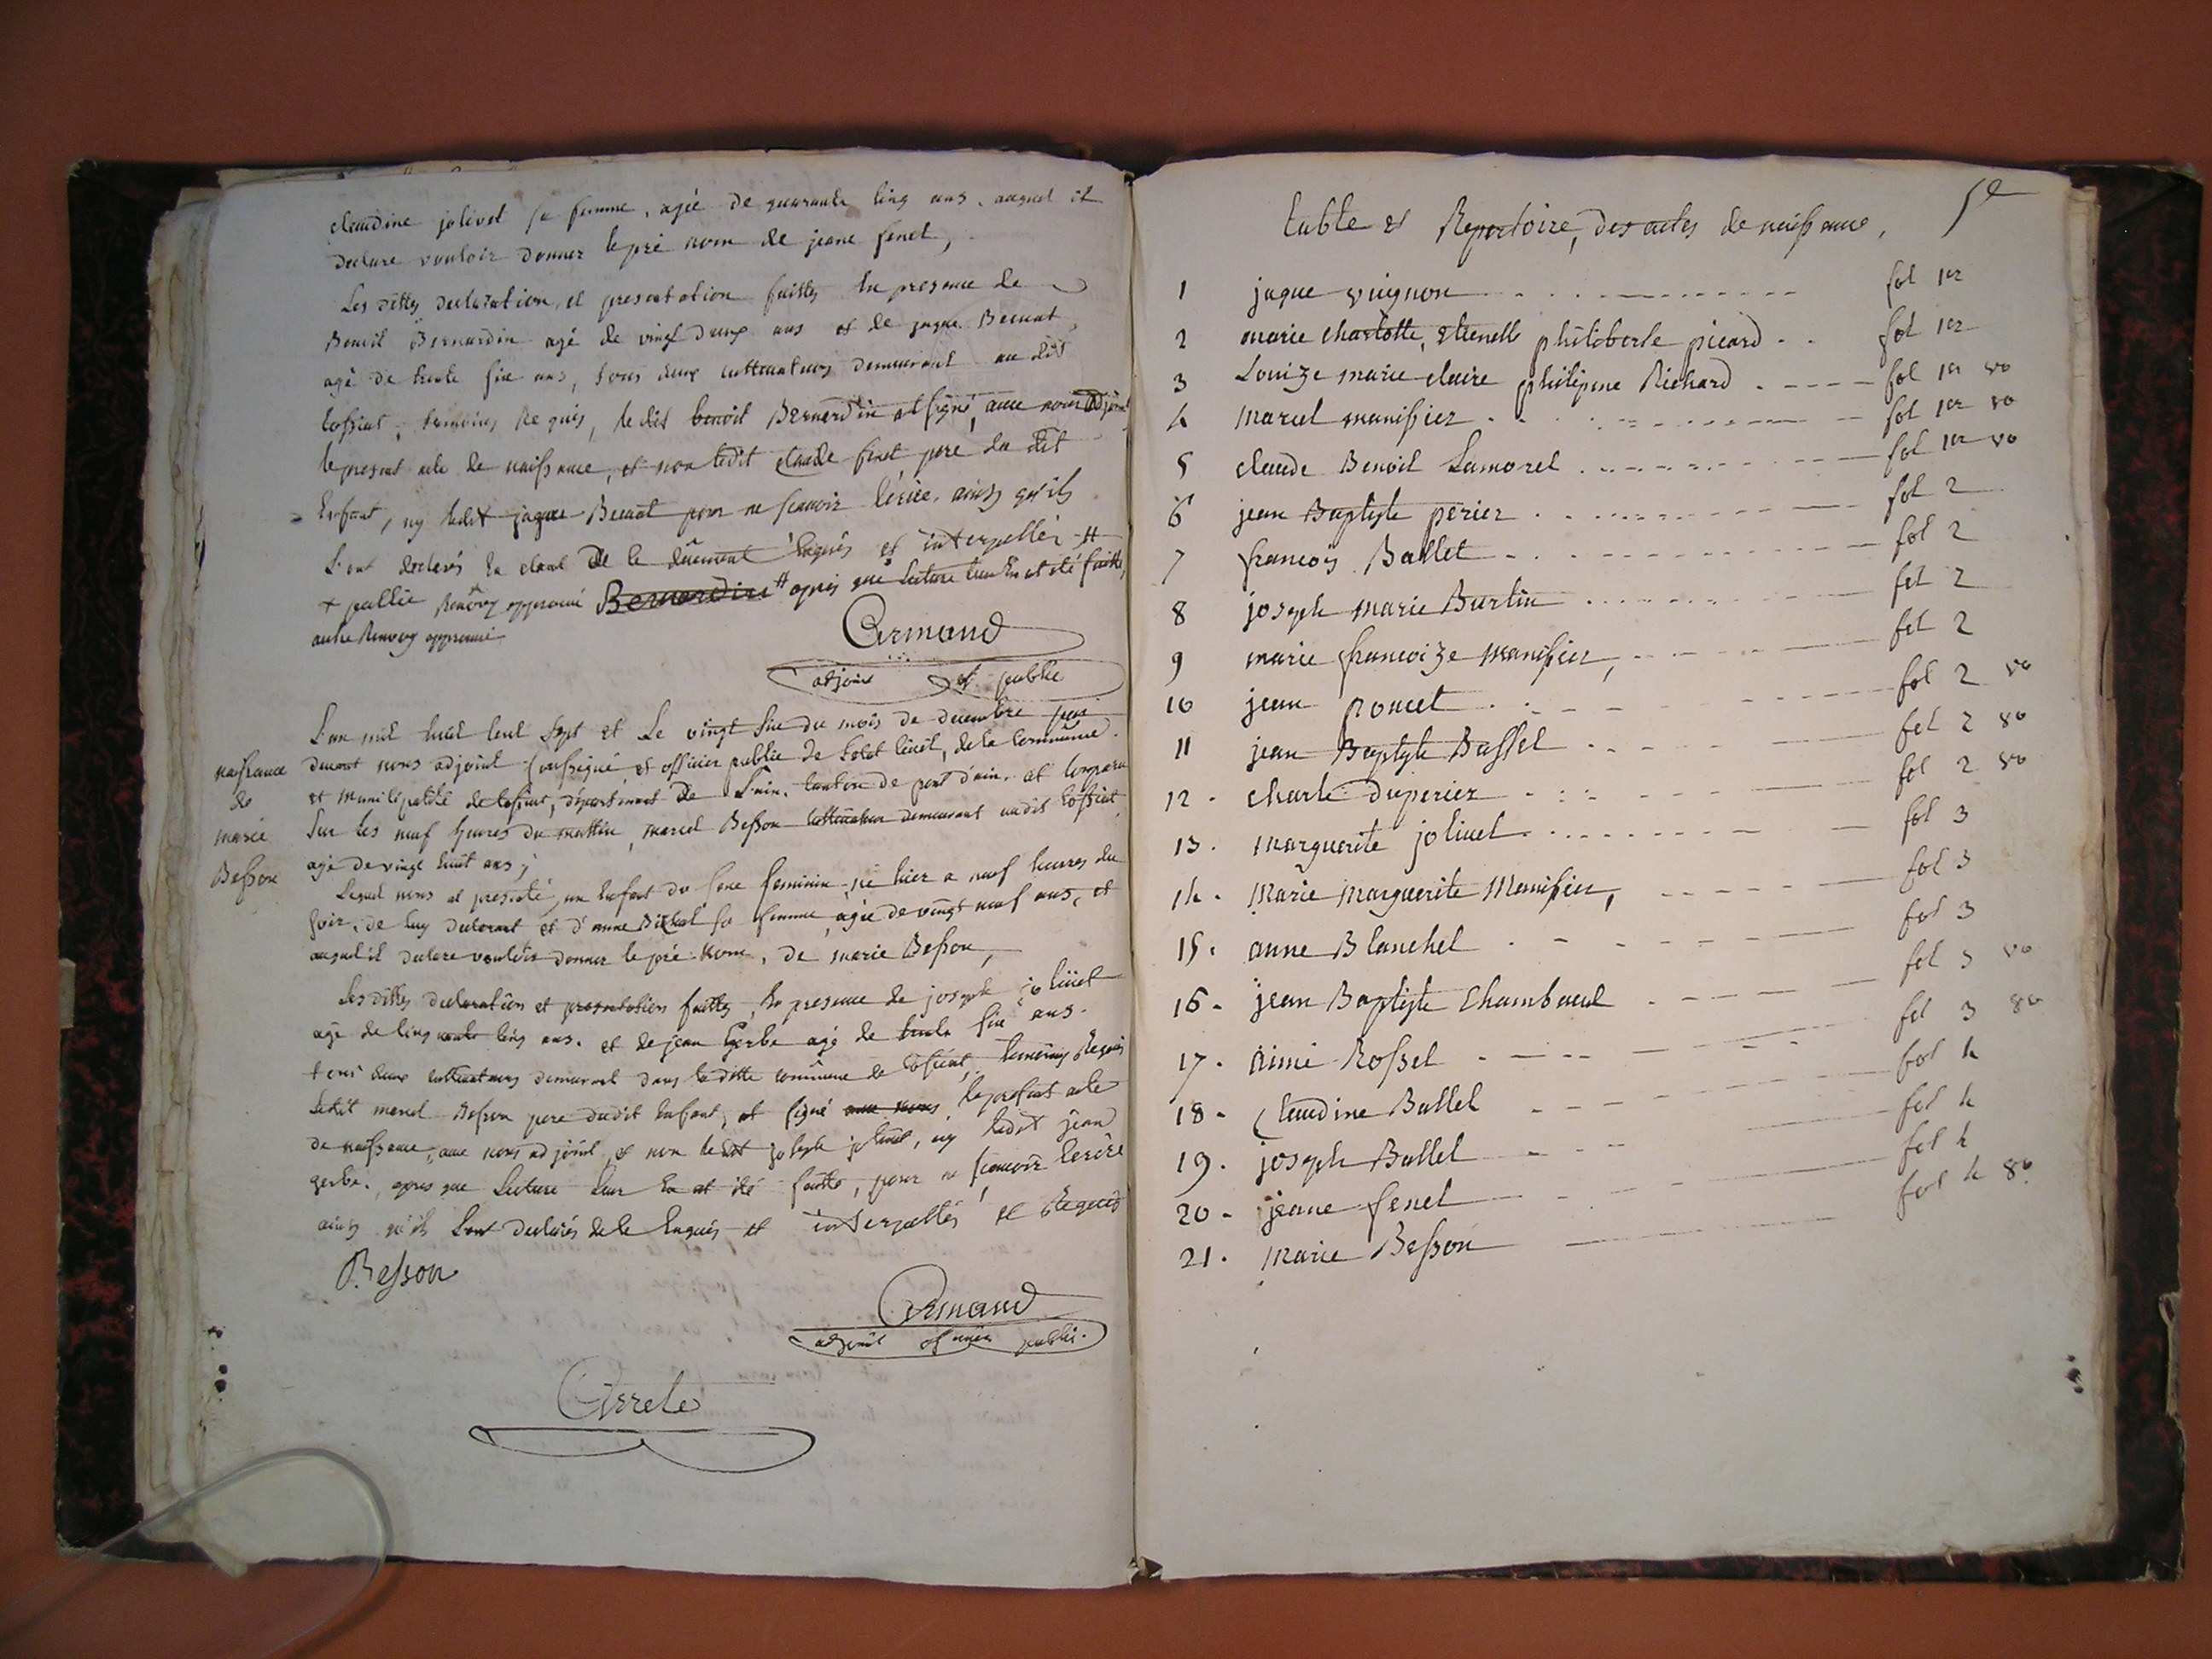 claudine jolivet sa femme, agée de quarante cinq ans, auquel il
declare vouloir donner le pré nom de jeane fenet,
Les dittes declaration et presentation faittes En presence de
Benoit Bernardin agé de vingt deux ans et de jaque
agé de trente six ans, tous deux cultivateurs demeurant au dit
, temoins Requis, le dit benoit Bernerdin at signé, avec nous adjoint
le present acte de naissance, et non ledit claude finet pere du dit
Enfant, ny ledit jaque pour ne scavoir Ecrire, ainsy qu'ils
L'ont declarés En etant de le dûement Enquis et interpellés #
+ publie Renvoy approuvé Bernerdin # apres que lecture leur En at eté faitte,
autre Renvoy approuvé
Armand
adjoint of. public
naissance
de
marie
Besson
L'an mil huit cent sept et Le vingt six du mois de decembre par
devant nous adjoint soussigné, et officier public de Letat civil, de la commune
et Municipalité de , département De L'ain, canton de pont d'ain, at comparu
Sur les neuf heures du mattin, marcel Besson cultivateur demeurant audit
agé de vingt huit ans,
Lequel nous at presenté, un Enfant du sexe feminin, né hier a neuf heures du
soir, de luy declarant et d'anne sa femme, agée de vingt neuf ans, et
auquel il declare vouloir donner le pré nom, de marie Besson,
Les dittes declaration et presentation faittes, En presence de joseph jolivet
agé de cinquante cinq ans, et de jean gerbe agé de trente six ans.
tous deux cultivateurs demeurant dans la ditte commune de , temoins Requis
Ledit marcel Besson pere dudit Enfant, at signé avec nous, le present acte
de naissance, avec nous adjoint, et non ledit joseph jolivet, ny ledit jean
gerbe, apres que Lecture Leur En at été faitte, pour ne scavoir Ecrire
ainsy qu'ils Lont declarés de le Enquis et interpellés et Requis
Besson
Armand
adjoint officier public.
Arreté
table et Repertoire, des actes de naissance, 5e
1 jaque vuignon fol 1er
2 marie charlotte, etienette philiberte picard fol 1er
3 Louize marie claire philipine Richard fol 1er vo
4 Marcel manissier fol 1er vo
5 claude Benoit Lamorel fol 1er vo
6 jean Baptiste perier fol 2
7 francois Ballet fol 2
8 joseph marie Burtin fol 2
9 marie francoize manissier, fol 2
10 jean poncet fol 2 vo
11 jean Baptiste Bassel fol 2 vo
12 . charle duperier fol 2 vo
13 . marguerite jolivet fol 3
14 . Marie Marguerite Manissier, fol 3
15 . anne Blanchet fol 3
16 - jean Baptiste Chambaud fol 3 vo
17 . Aimé Rossel fol 3 vo
18 - Claudine Ballet fol 4
19 . joseph Ballet fol 4
20 - jeane fenet fol 4
21 . Marie Besson fol 4 vo